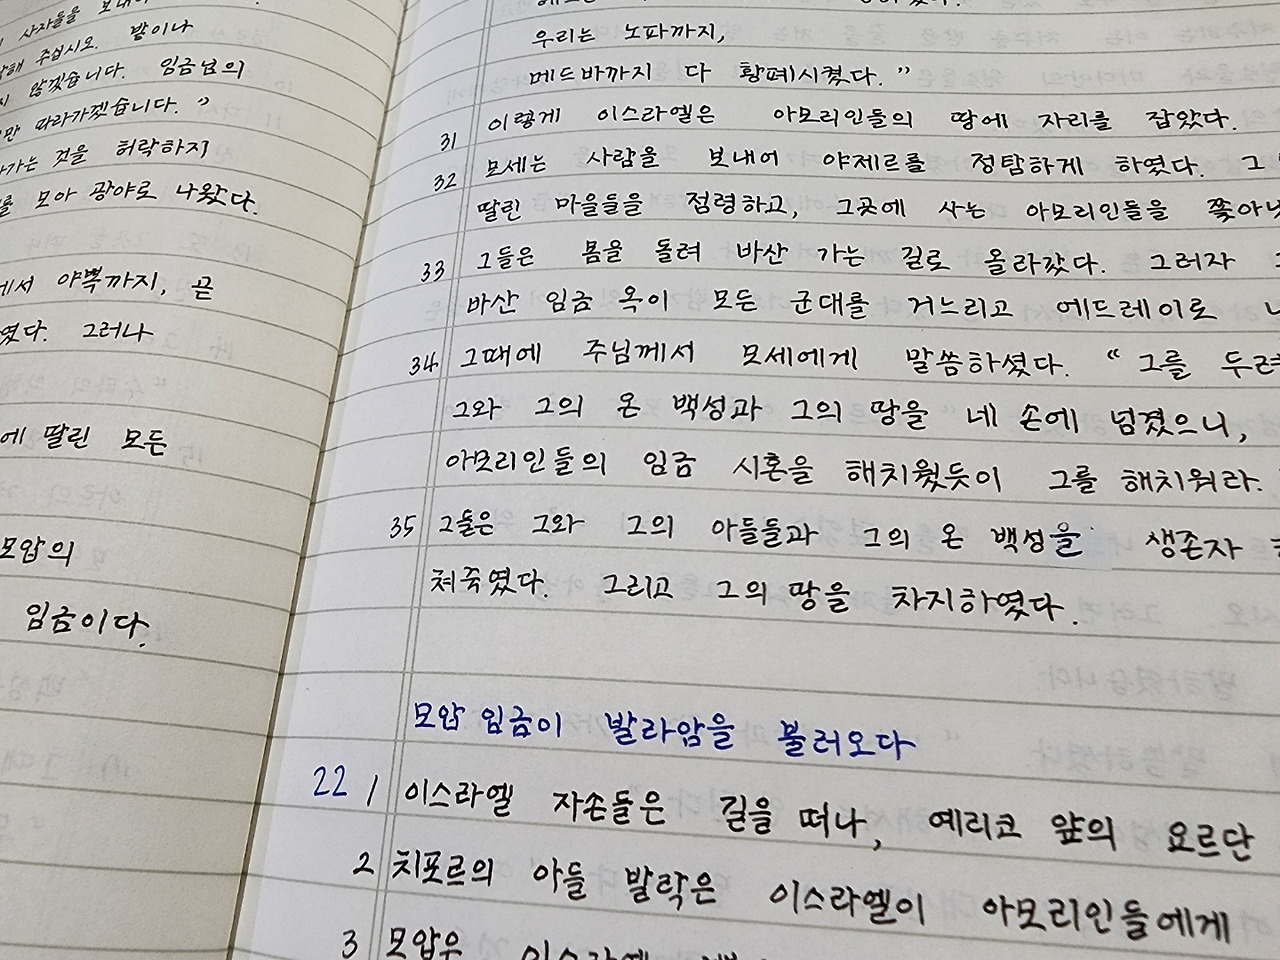 사자들을
주십시오. 밭이나
않겠습니다. 임금님의
따라가겠습니다."
것을 허락하지
모아 광야로 나왔다.
야뽁까지, 곧
그러나
에 딸린 모든
모압의
임금이다.
우리는 노파까지,
메드바까지 다 황폐시켰다."
31 이렇게 이스라엘은 아모리인들의 땅에 자리를 잡았다.
32 모세는 사람을 보내어 야제르를 정탐하게 하였다. 그
딸린 마을들을 점령하고, 그곳에 사는 아모리인들을
33 그들은 몸을 돌려 바산 가는 길로 올라갔다. 그러자
바산 임금 옥이 모든 군대를 거느리고 에드레이로
34 그때에 주님께서 모세에게 말씀하셨다. "그를
그와 그의 온 백성과 그의 땅을 네 손에 넘겼으니,
아모리인들의 임금 시혼을 해치웠듯이 그를 해치워라.
35 그들은 그와 그의 아들들과 그의 온 백성을 생존자
쳐죽였다. 그리고 그의 땅을 차지하였다.
모압 임금이 발라암을 불러오다
22 1 이스라엘 자손들은 길을 떠나, 예리코 앞의 요르단
2 치포르의 아들 발락은 이스라엘이 아모리인들에게
3